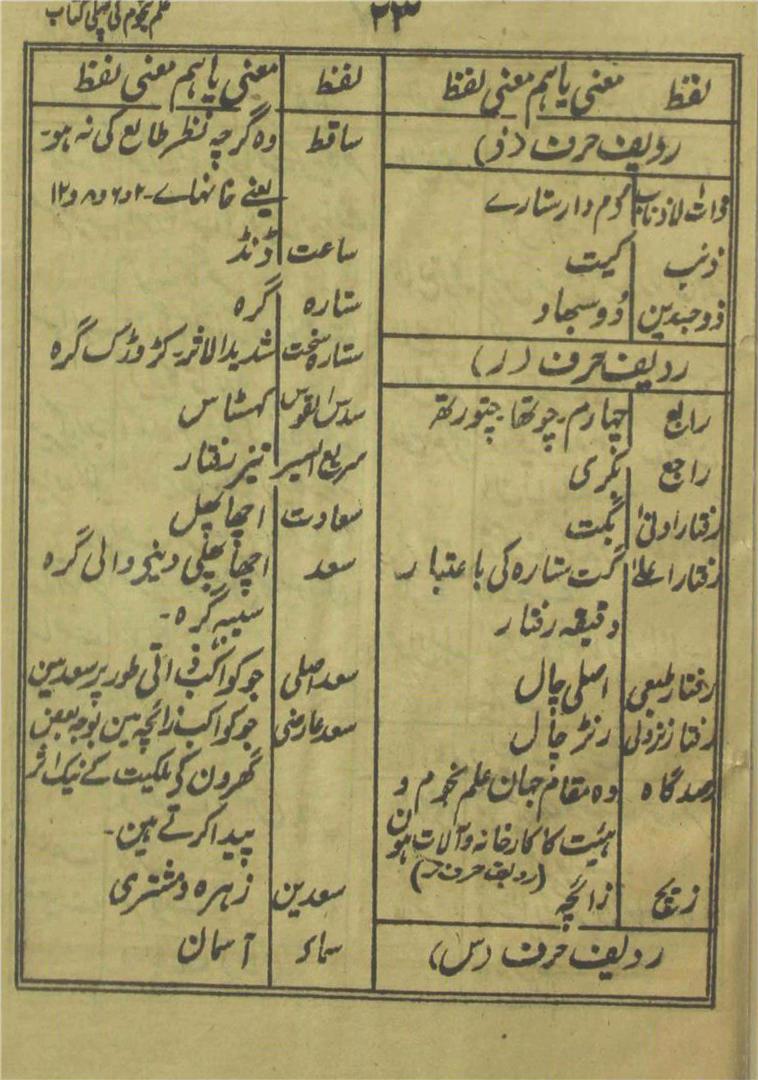 علم نجوم کی پہلی کتاب
۲۳
لفظ معنی یا ہم معنی لفظ
ردیف حرف (ذ)
ذوات الاذناب دُم دار ستارے
ذنب کیت
ذوجسدین دُوسبھاو
ردیف حرف (ر)
رابع چہارم۔ چوتھا۔ چتورتھ
راجع بکری
رفتار اولیٰ بگت
رفتار اعلےٰ گت ستارہ کی باعتبار
دقیقہ رفتار
رفتار طبعی اصلی چال
رفتار نزولی رنڑ چال
رصدگاہ وہ مقام جہان علم نجوم و
ہیئت کا کارخانہ و آلات ہون
(ردیف حرف ز)
زیچ زائچہ
ردیف حرف (س)
لفظ معنی یا ہم معنی لفظ
ساقط وہ گرچہ نظر طالع کی نہ ہو۔
یعنے خانہاے۔ ۲ و ۶ و ۸ و ۱۲
ساعت ڈنڈ
ستارہ گرہ
ستارہ سخت شدیدالاثر۔ کڑوڈک گرہ
سدس القوس کہشٹاس
سریع السیر تیز رفتار
سعادت اچھا پھل
سعد اچھا پھل دینے والی گرہ
سبیہ گرہ۔
سعد اصلی جو کواکب ذاتی طور پر سعد ہین
سعد عارضی جو کواکب زائچہ مین بوجہ بعض
گھرون کی ملکیت کے نیک اثر
پیدا کرتے ہین۔
سعدین زہرہ و مشتری
سماء آسمان